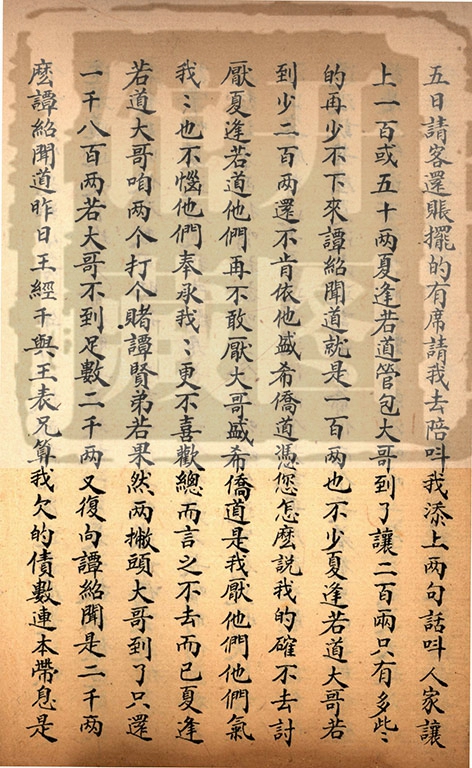 五日請客還賬擺的有席請我去陪呌我添上两句話呌人家讓
上一百或五十两夏逢若道管包大哥到了讓二百兩只有多些〻
的再少不下來譚紹聞道就是一百两也不少夏逢若道大哥若
到少二百两還不肯依他盛希僑道憑您怎麽說我的確不去討
厭夏逢若道他們再不敢厭大哥盛希僑道是我厭他們他們氣
我〻也不惱他們奉承我〻更不喜歡總而言之不去而已夏逢
若道大哥咱两个打个賭譚賢弟若果然两撇頭大哥到了只還
一千八百两若大哥不到足數二千两又復向譚紹聞是二千两
麽譚紹聞道昨日王經千與王表兄算我欠的債數連本帶息是